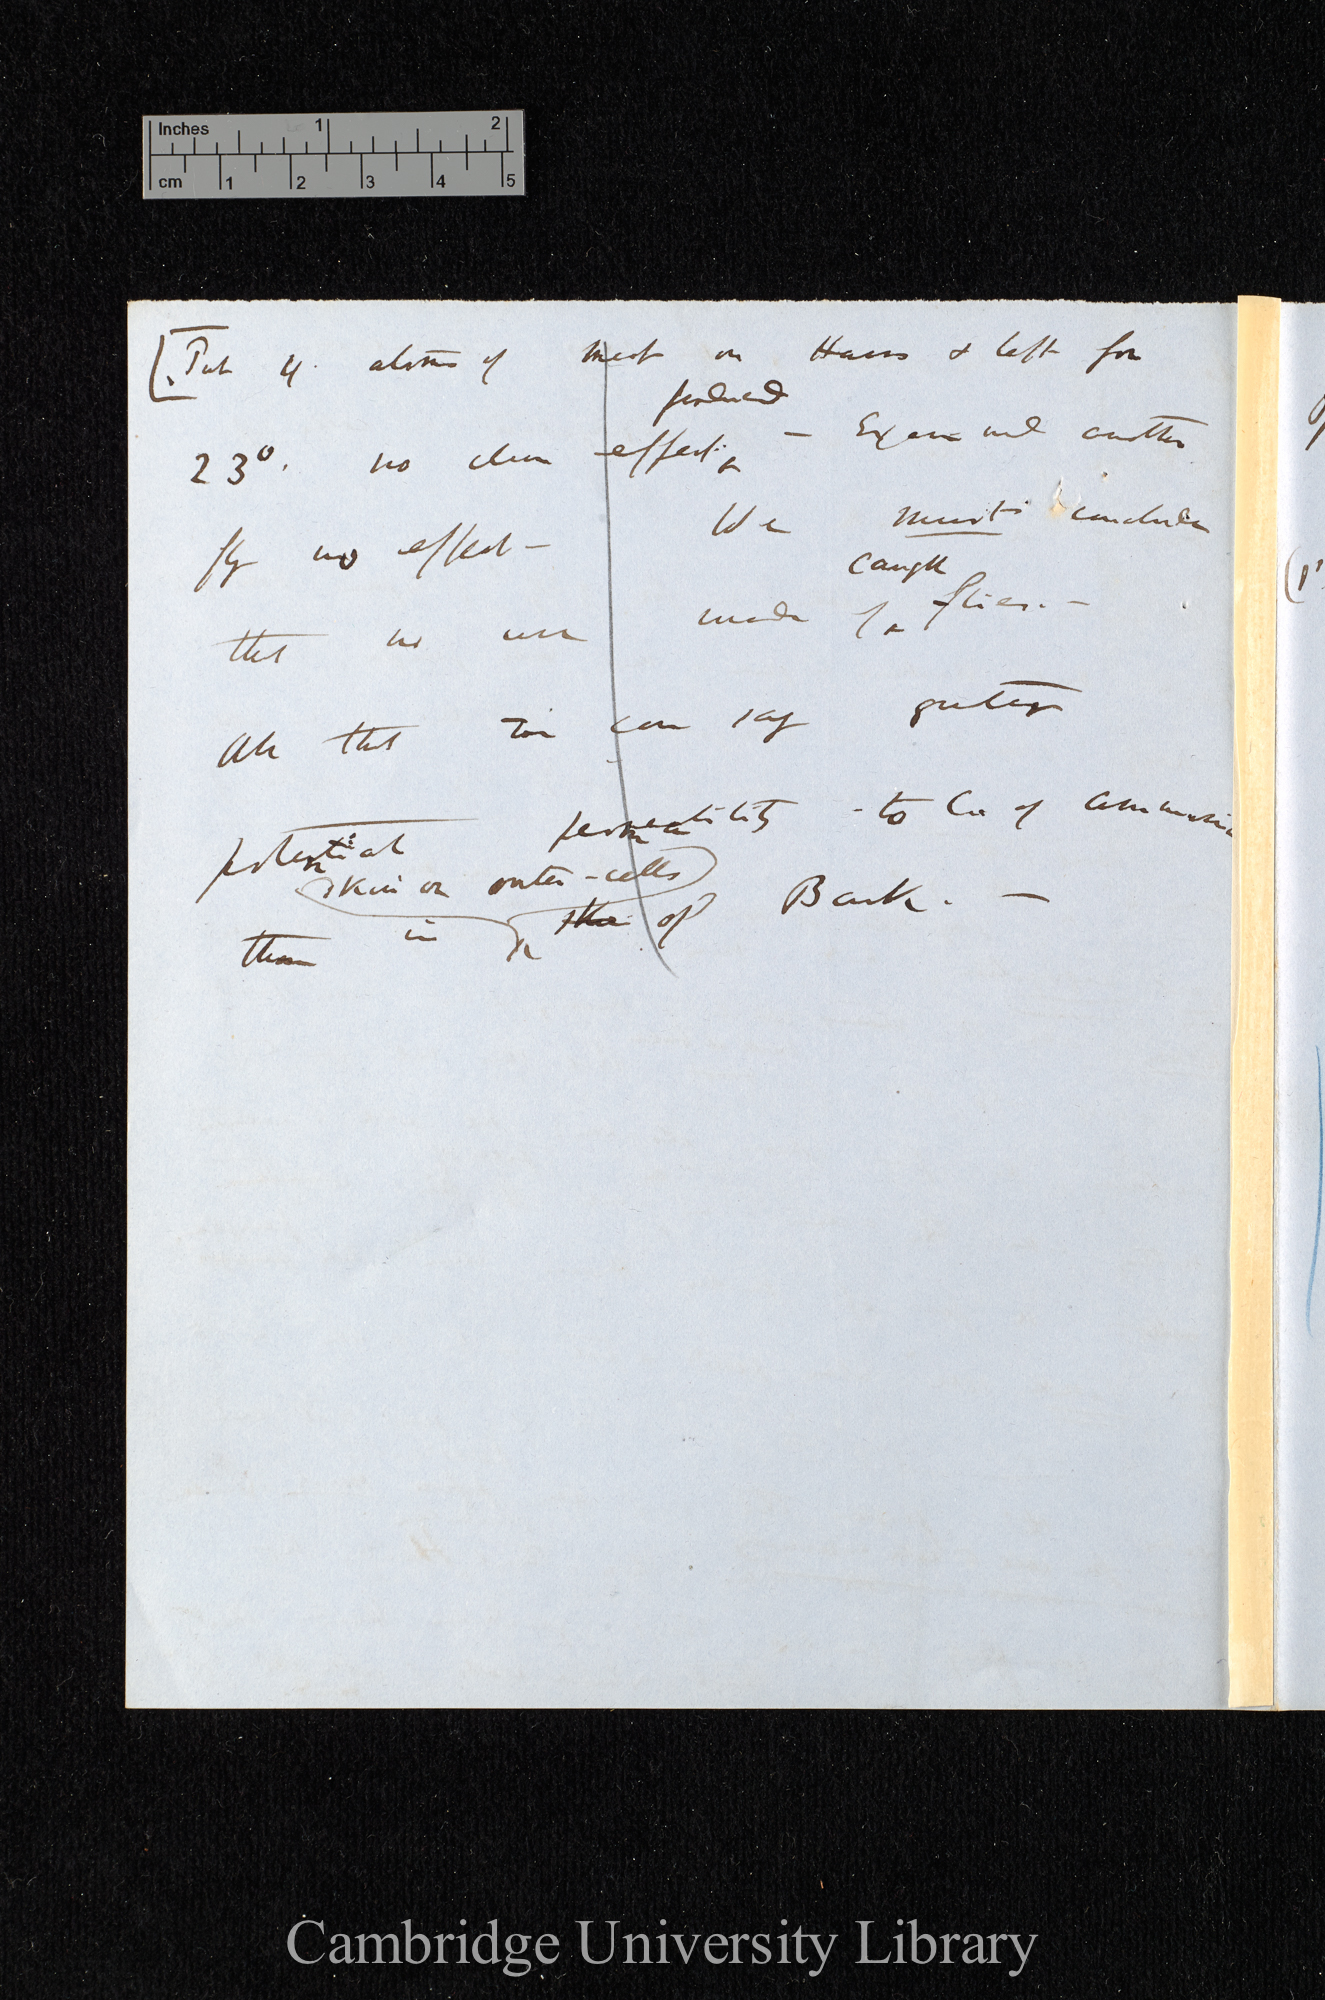 Inches 1 2
cm 1 2 3 4 5
[Put 4. atoms of meat on Hairs & left for
produced
23°. no clear effect — Examined another
fly no effect — We must conclude
caught
that no use made of flies. —
All that I can say greater
potential permeability to C. of Ammonia
skin or outer-cells
than in the of Bark. —
Cambridge University Library